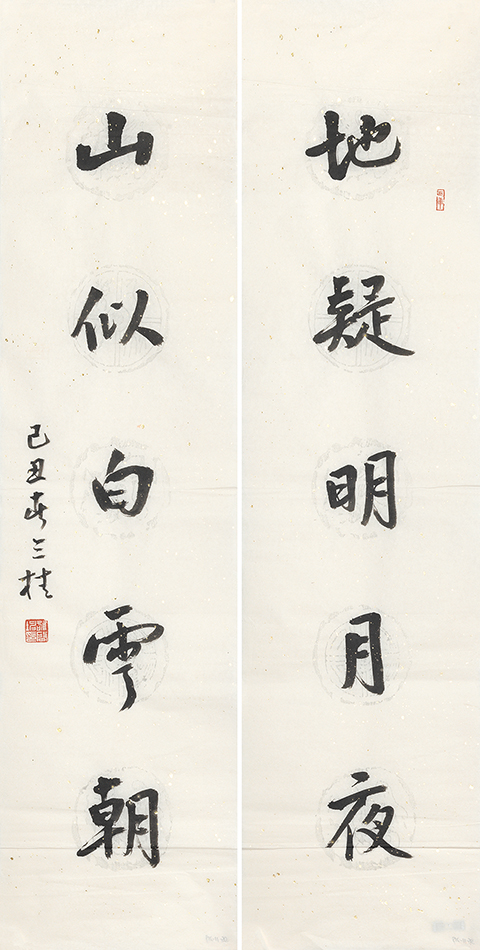 地疑明月夜
山似白雲朝
己丑春三桂